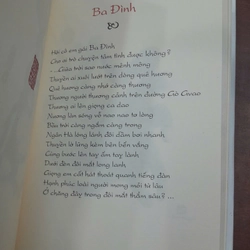 Ba Đình
Hỡi cô em gái Ba Đình
Cho ai trò chuyện tâm tình được không?
...Giữa trời sao nước mênh mông
Thuyền ai xuôi lướt trên dòng quê hương
Quê hương càng nhớ càng thương
Thương người thương cảnh trên đường Gió Creo
Thương ai lên giọng ca dao
Nương làn sóng vỗ nao nao tơ lòng
Bầu trời càng ngắm càng trong
Ngân Hà lóng lánh đôi dòm bơi nhanh
Thuyền là lửng kẽm bên biển vắng
Cùng bước lên tay ấm tay lành
Dưới đèn đôi mắt long lanh
Giọng em cất hát thoát quanh tiếng đàn
Hạnh phúc loài người mong mỏi từ lâu
Ở chăng đây trong đôi mắt thẳm sâu? ...